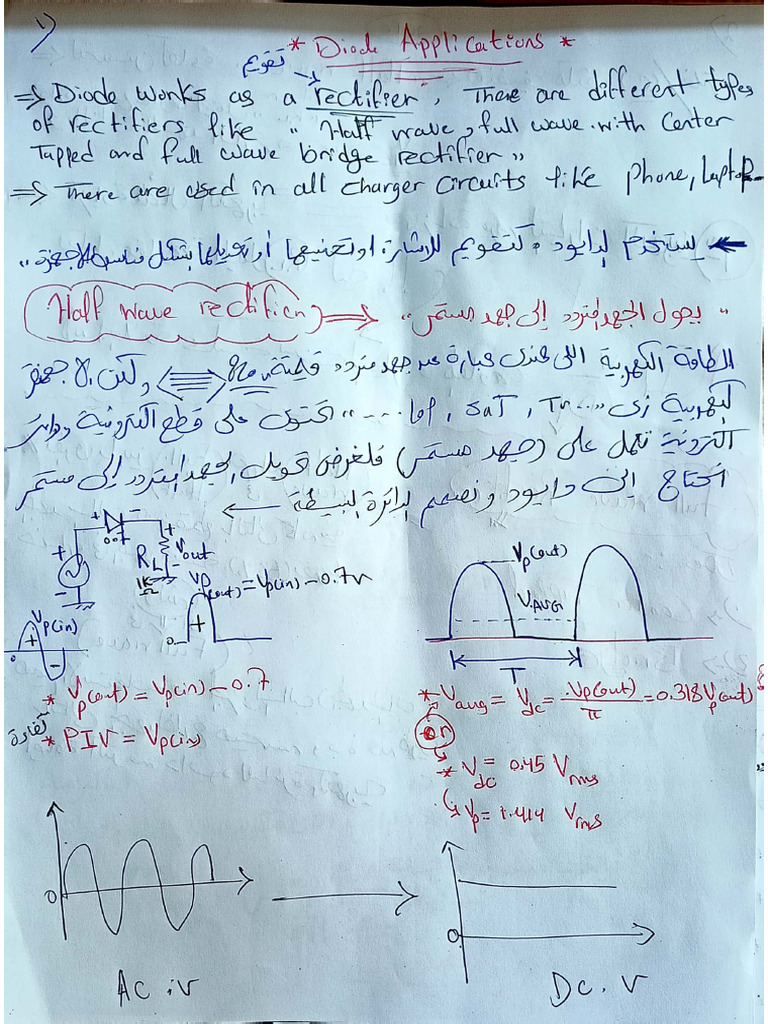 1)
* Diode Applications *
تقويم
⇒ Diode works as a rectifier, There are different types
of rectifiers like " Half wave, full wave with Center
Tapped and full wave bridge rectifier "
⇒ There are used in all charger circuits like phone, Laptop
← يستخدم الدايود كتقويم للإشارة او تحويلها بشكل مناسب للأجهزة "
Half wave rectifier ⇒ " يحول الجهد المتردد إلى جهد مستمر "
الطاقة الكهربية اللي عندى عبارة عن جهد متردد ولكن الاجهزة
الكهربية زى " .... تحتوى على قطع الكترونية ودوائر
الكترونية تعمل على (جهد مستمر) فلغرض تحويل الجهد المتردد إلى مستمر
نحتاج إلى دايود ونصمم الدائرة البسيطة ←
+ - +
0.7
Vout
RL
1K Ω
-
+
-
Vp(in)
0 + -
Vp(out) = Vp(in) - 0.7v
0 +
Vp(out)
VAVG
T
* Vp(out) = Vp(in) - 0.7
* PIV = Vp(in)
* Vavg = Vdc = Vp(out)/π = 0.318 Vp(out)
or
* Vdc = 0.45 Vrms
Vp = 1.414 Vrms
0
0
AC . v
DC . v